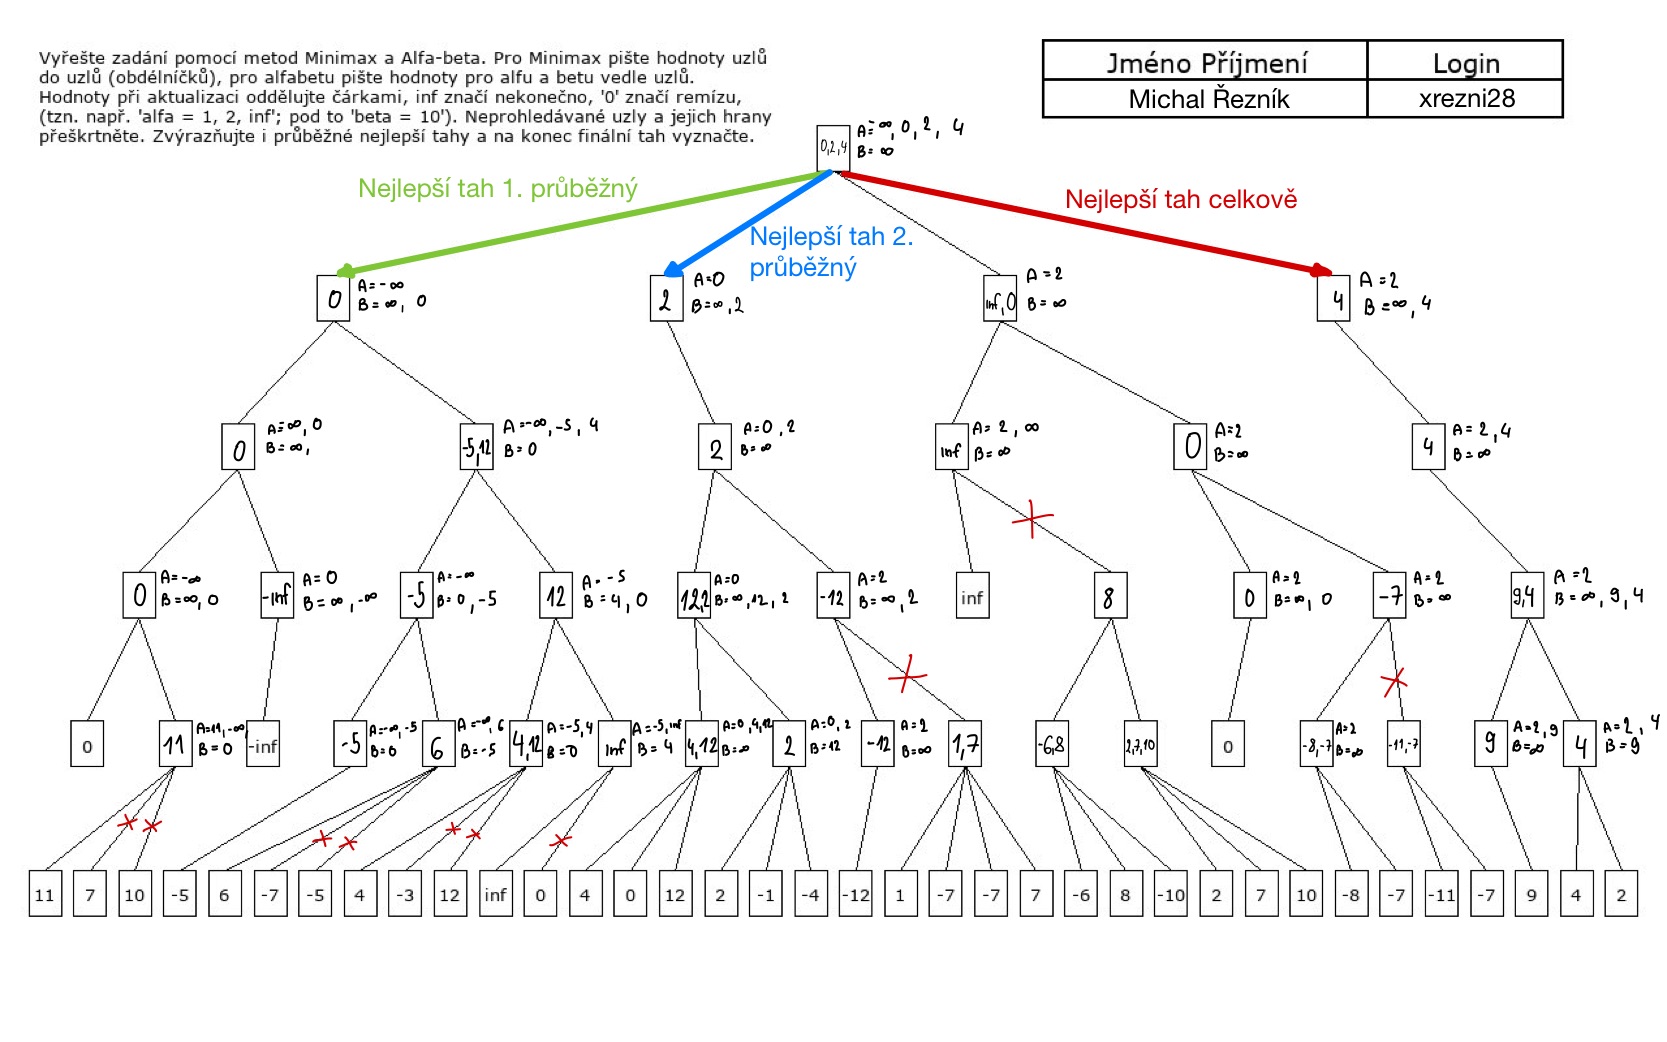 Vyřešte zadání pomocí metod Minimax a Alfa-beta. Pro Minimax pište hodnoty uzlů
do uzlů (obdélníčků), pro alfabetu pište hodnoty pro alfu a betu vedle uzlů.
Hodnoty při aktualizaci oddělujte čárkami, inf značí nekonečno, '0' značí remízu,
(tzn. např. 'alfa = 1, 2, inf'; pod to 'beta = 10'). Neprohledávané uzly a jejich hrany
přeškrtněte. Zvýrazňujte i průběžné nejlepší tahy a na konec finální tah vyznačte.
Jméno Příjmení Login
Michal Řezník xrezni28
0,2,4 A=-∞, 0, 2, 4
B=∞
Nejlepší tah 1. průběžný
Nejlepší tah 2.
průběžný
Nejlepší tah celkově
0 A=-∞
B=∞, 0
2 A=0
B=∞, 2
inf,0 A=2
B=∞
4 A=2
B=∞, 4
0 A=-∞, 0
B=∞,
-5,12 A=-∞, -5, 4
B=0
2 A=0, 2
B=∞
inf A=2, ∞
B=∞
0 A=2
B=∞
4 A=2, 4
B=∞
0 A=-∞
B=∞, 0
-inf A=0
B=∞, -∞
-5 A=-∞
B=0, -5
12 A=-5
B=4, 0
12,2 A=0
B=∞, 12, 2
-12 A=2
B=∞, 2
inf
8
0 A=2
B=∞, 0
-7 A=2
B=∞
9,4 A=2
B=∞, 9, 4
0
11 A=11, -∞
B=0
-inf
-5 A=-∞, -5
B=0
6 A=-∞, 6
B=-5
4,12 A=-5, 4
B=0
inf A=-5, inf
B=4
4,12 A=0, 4, 12
B=∞
2 A=0, 2
B=12
-12 A=2
B=∞
1,7
-6,8
2,7,10
0
-8,-7 A=2
B=∞
-11,-7
9 A=2, 9
B=∞
4 A=2, 4
B=9
11 7 10 -5 6 -7 -5 4 -3 12 inf 0 4 0 12 2 -1 -4 -12 1 -7 -7 7 -6 8 -10 2 7 10 -8 -7 -11 -7 9 4 2